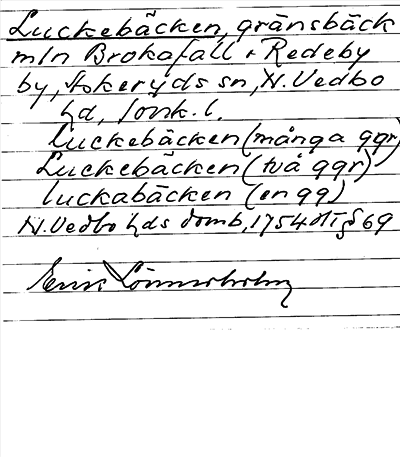 Luckebäcken, gränsbäck
mln Brokafall o Redeby
by, Askeryds sn, N. Vedbo
hd, Jönk. l.
luckebäcken (många ggr)
Luckebäcken (två ggr)
luckabäcken (en gg)
N. Vedbo hds domb, 1754 HT § 69